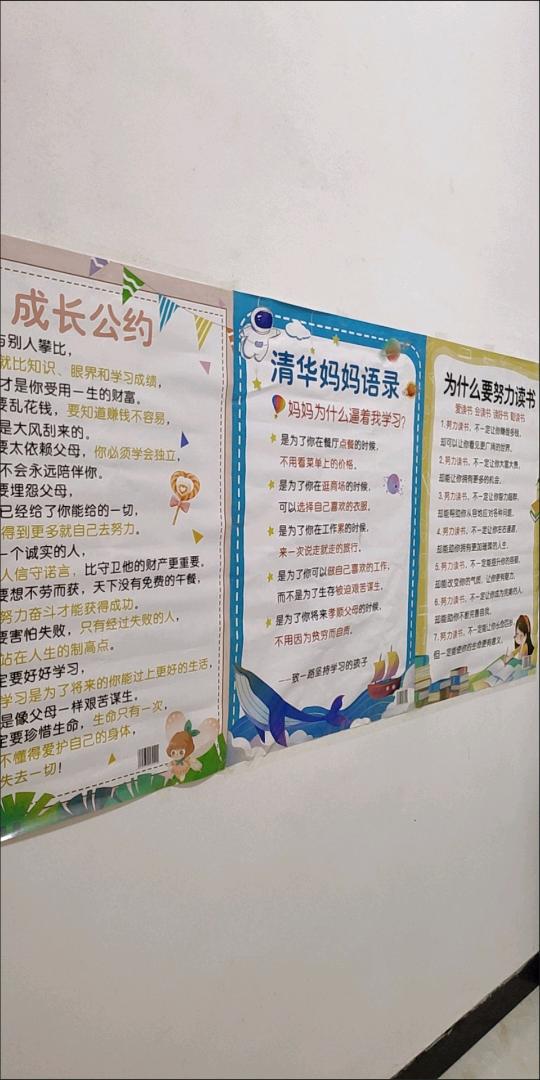 成长公约
与别人攀比，
就比知识、眼界和学习成绩，
才是你受用一生的财富。
要乱花钱，要知道赚钱不容易，
是大风刮来的。
要太依赖父母，你必须学会独立，
不会永远陪伴你。
要埋怨父母，
已经给了你能给的一切，
得到更多就自己去努力。
一个诚实的人，
人信守诺言，比守卫他的财产更重要。
要想不劳而获，天下没有免费的午餐，
努力奋斗才能获得成功。
要害怕失败，只有经过失败的人，
站在人生的制高点。
定要好好学习，
学习是为了将来的你能过上更好的生活，
是像父母一样艰苦谋生。
定要珍惜生命，生命只有一次，
不懂得爱护自己的身体，
失去一切！
清华妈妈语录
妈妈为什么逼着我学习？
是为了你在餐厅点餐的时候，
不用看菜单上的价格，
是为了你在逛商场的时候，
可以选择自己喜欢的衣服，
是为了你在工作累的时候，
来一次说走就走的旅行，
是为了你可以做自己喜欢的工作，
而不是为了生存被迫艰苦谋生，
是为了你将来孝顺父母的时候，
不用因为贫穷而自责。
——致一路坚持学习的孩子
为什么要努力读书
爱读书 会读书 读好书 勤读书
1.努力读书，不一定让你赚很多钱，
却可以让你看见更广阔的世界。
2.努力读书，不一定让你大富大贵，
却能让你拥有更多的机会。
3.努力读书，不一定让你智力超群，
却能帮助你从容地应对各种问题。
4.努力读书，不一定让你左右逢源，
却能助你拥有更加璀璨的人生。
5.努力读书，不一定能提升你的容颜，
却能改变你的气质，让你更有魅力。
6.努力读书，不一定让你成为完美的人，
却能助你不断完善自我。
7.努力读书，不一定能让你长命百岁，
但一定能使你的生命更有意义。